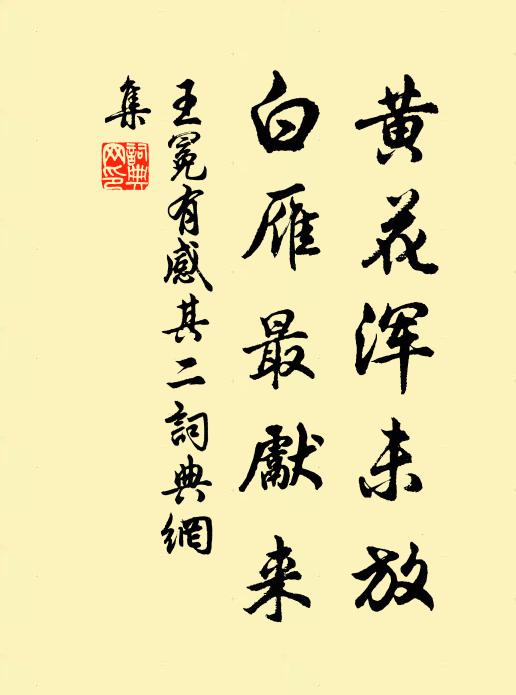 黄花浑未放
白雁最獻来
王冕有感其二詞典網
集
詞典
网印